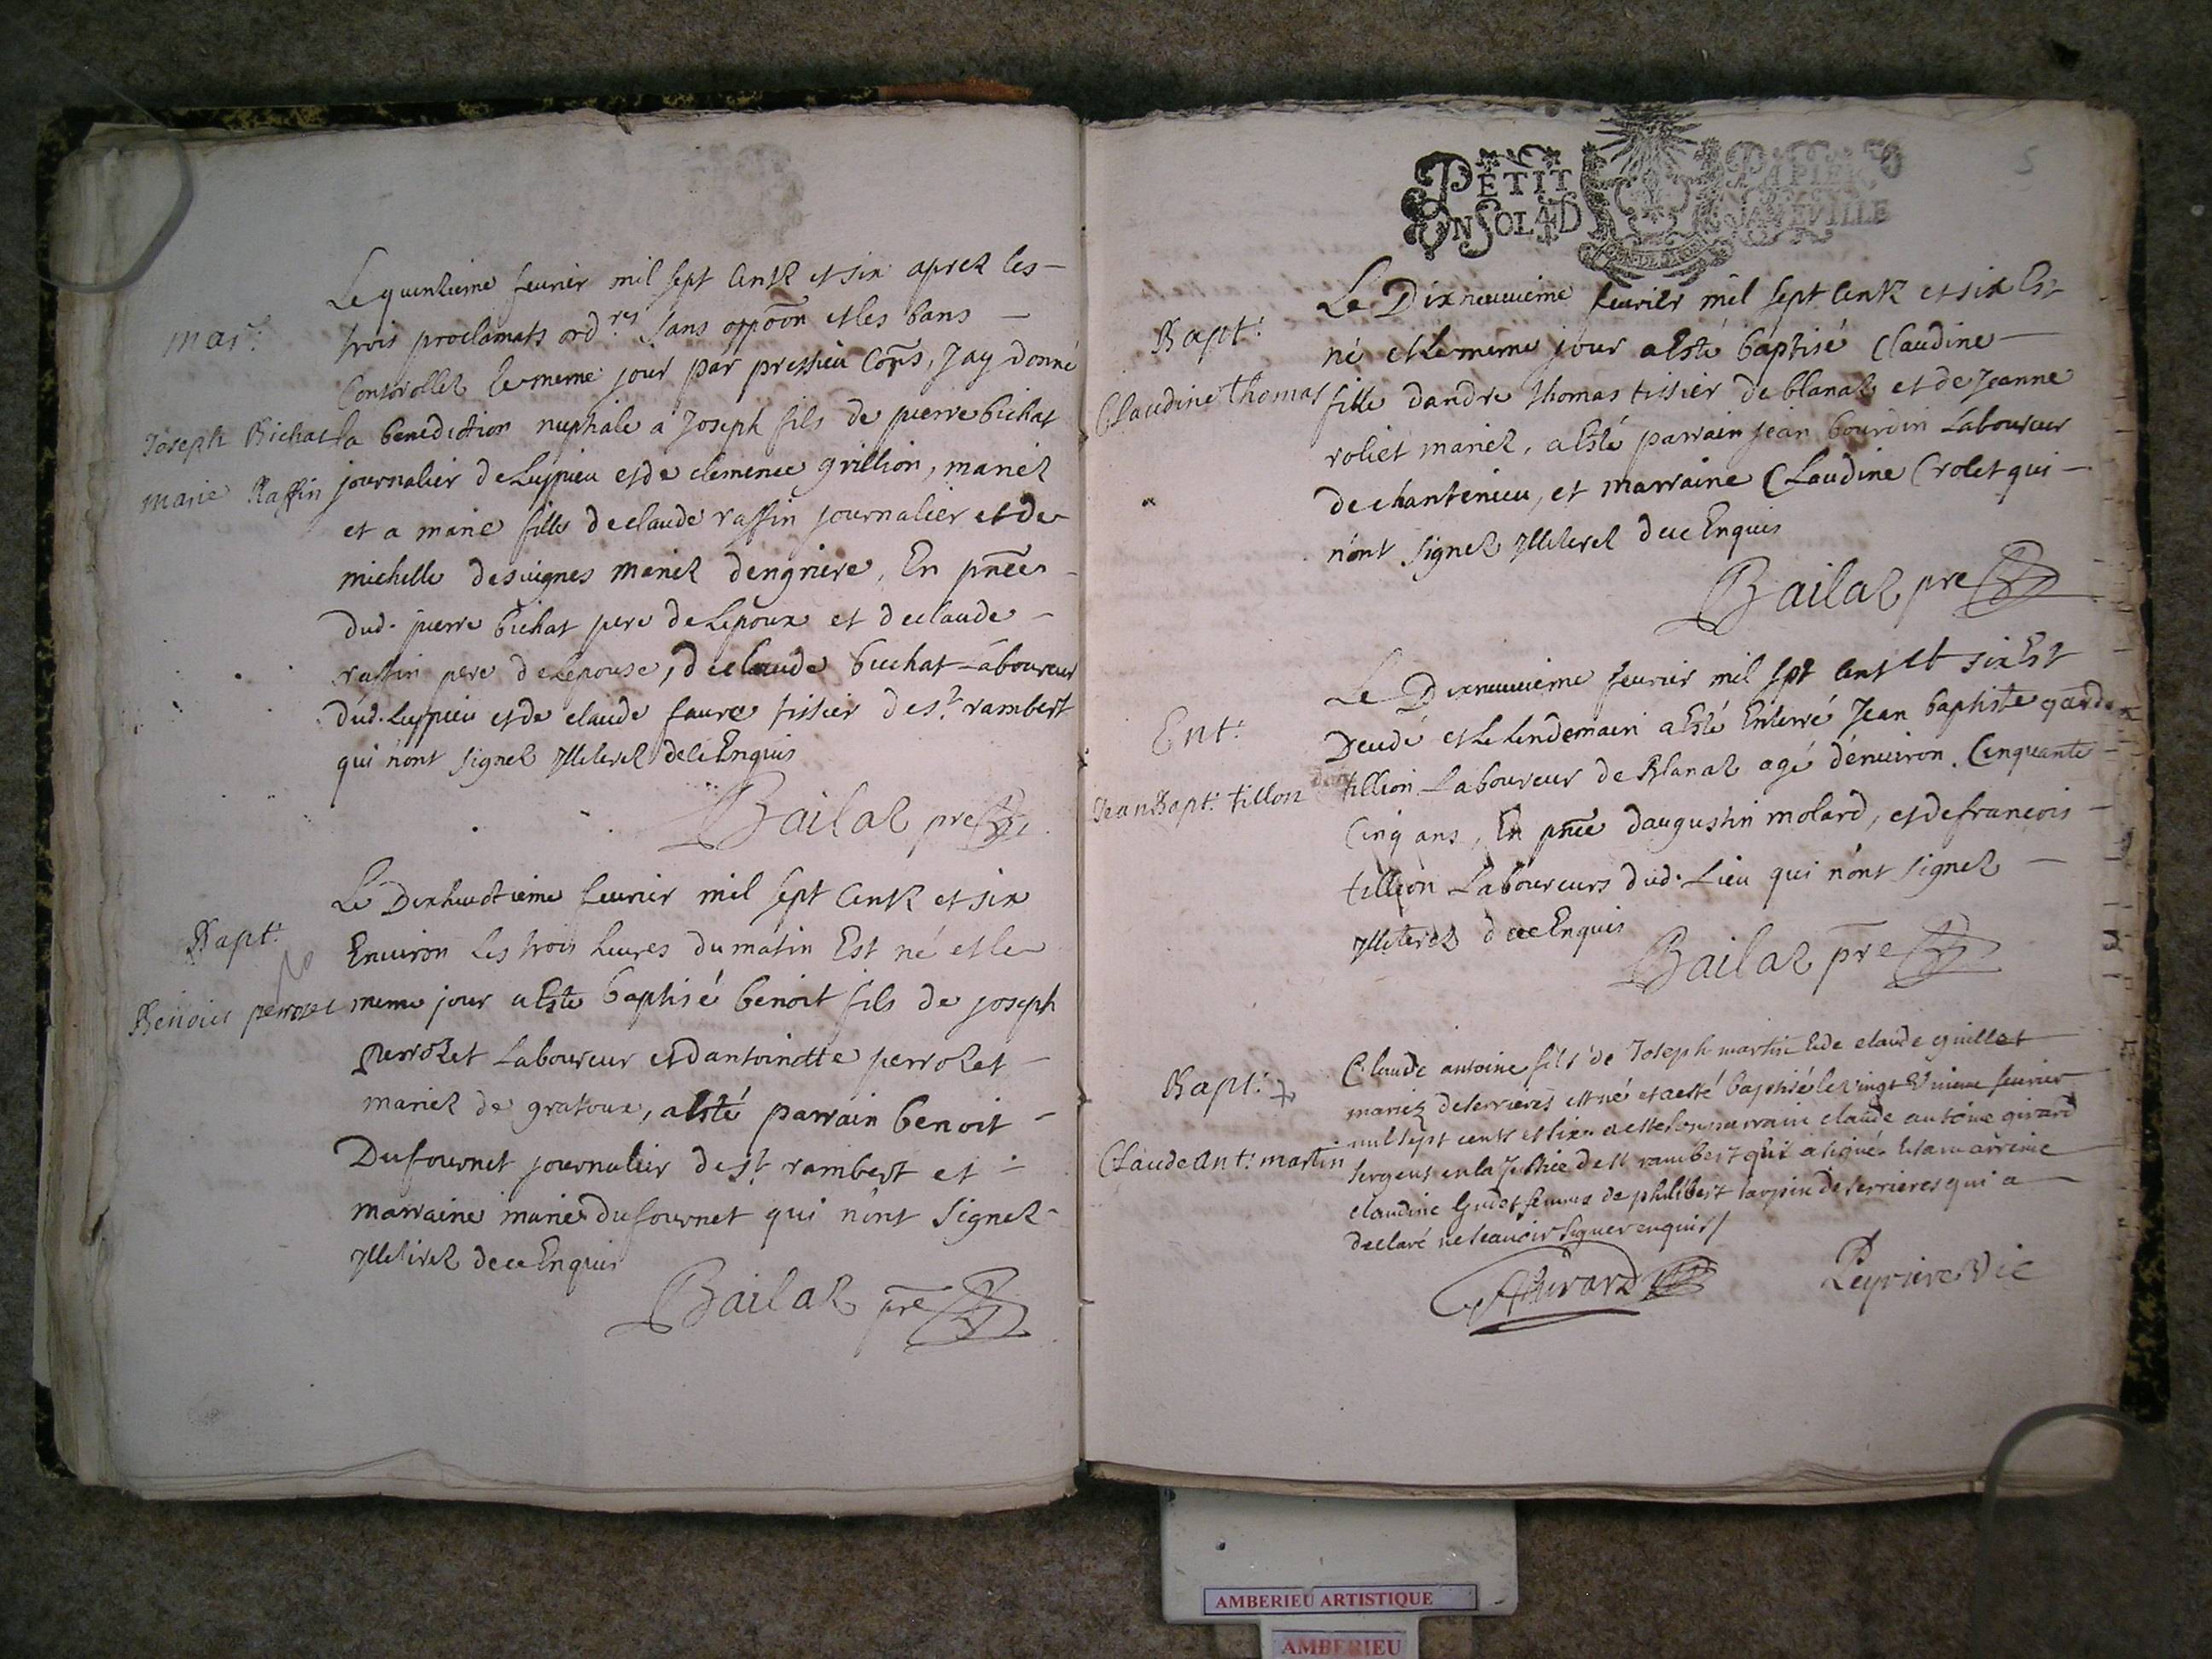 mar.
Joseph Bichat
marie Raffin
Le quenzieme feurier mil sept centz et six aprez les
trois proclamats ord.res sans oppoôn et les bans
Controllez le meme jour par pressieu Coñs, Jay donné
la benediction nuphale a Joseph fils de pierre bichat
journalier de Luppieu et de clemence grillion, mariez
et a marie fille de claude raffin journalier et de
michelle desuignes mariez dengriere, En pñce
dud. pierre bichat pere de Lepoux et de claude
raffin pere de Lepouse, de claude bichat Laboureur
dud. Luppieu et de claude faure tissier de st. rambert
qui n'ont signez Illiterez de ce Enquis
Bailaz pre
Bapt.
Benoict perrozet
Le Dixhuictieme feurier mil sept Centz et six
Enuiron Les trois heures du matin Est né et le
meme jour a Esté baptisé benoit fils de joseph
perrozet Laboureur et dantoinette perrozet
mariez de gratoux, a Esté parrain benoit
Dufournet journalier de st. rambert et
marraine marie dufournet qui n'ont Signez
Illitirez de ce Enquis
Bailaz pre
5
PETIT PAPIER
UN SOL 4D LA FEVILLE
Bapt.
Claudine Thomas
Le Dix neuuieme feurier mil sept Centz et six Est
né et Le meme jour a Esté baptisé Claudine
fille dandre thomas tissier de blanaz et de Jeanne
roliet mariez, a Esté parrain jean bourdin Laboureur
de chantenieu, et marraine Claudine Crolet qui
n'ont signez Illiterez de ce Enquis
Bailaz pre
Ent.
Jean Bapt. tillon
Le Dixneuuieme feurier mil sept cent et six Est
Decedé et Le Lendemain a Esté Enterré Jean baptiste garde
tillion Laboureur de Blanaz agé d'enuiron Cinquante
Cinq ans, En pñce daugustin molard, et de francois
tillion Laboureurs dud. Lieu qui n'ont signez
Illiterez de ce Enquis
Bailaz pre
Bapt.
Claude Ant. martin
Claude antoine fils de Joseph martin & de claude guillet
mariez de serrieres est né et a esté baptisé le vingt Unieme feurier
mil sept centz et six. a esté son parrain claude antoine girard
sergent en la Justice de st rambert qui a signé. & sa marreine
claudine femme de philibert de serrieres qui a
declaré ne scauoir signer enquis /
Girard
Peyriere Vic
AMBERIEU ARTISTIQUE
AMBERIEU